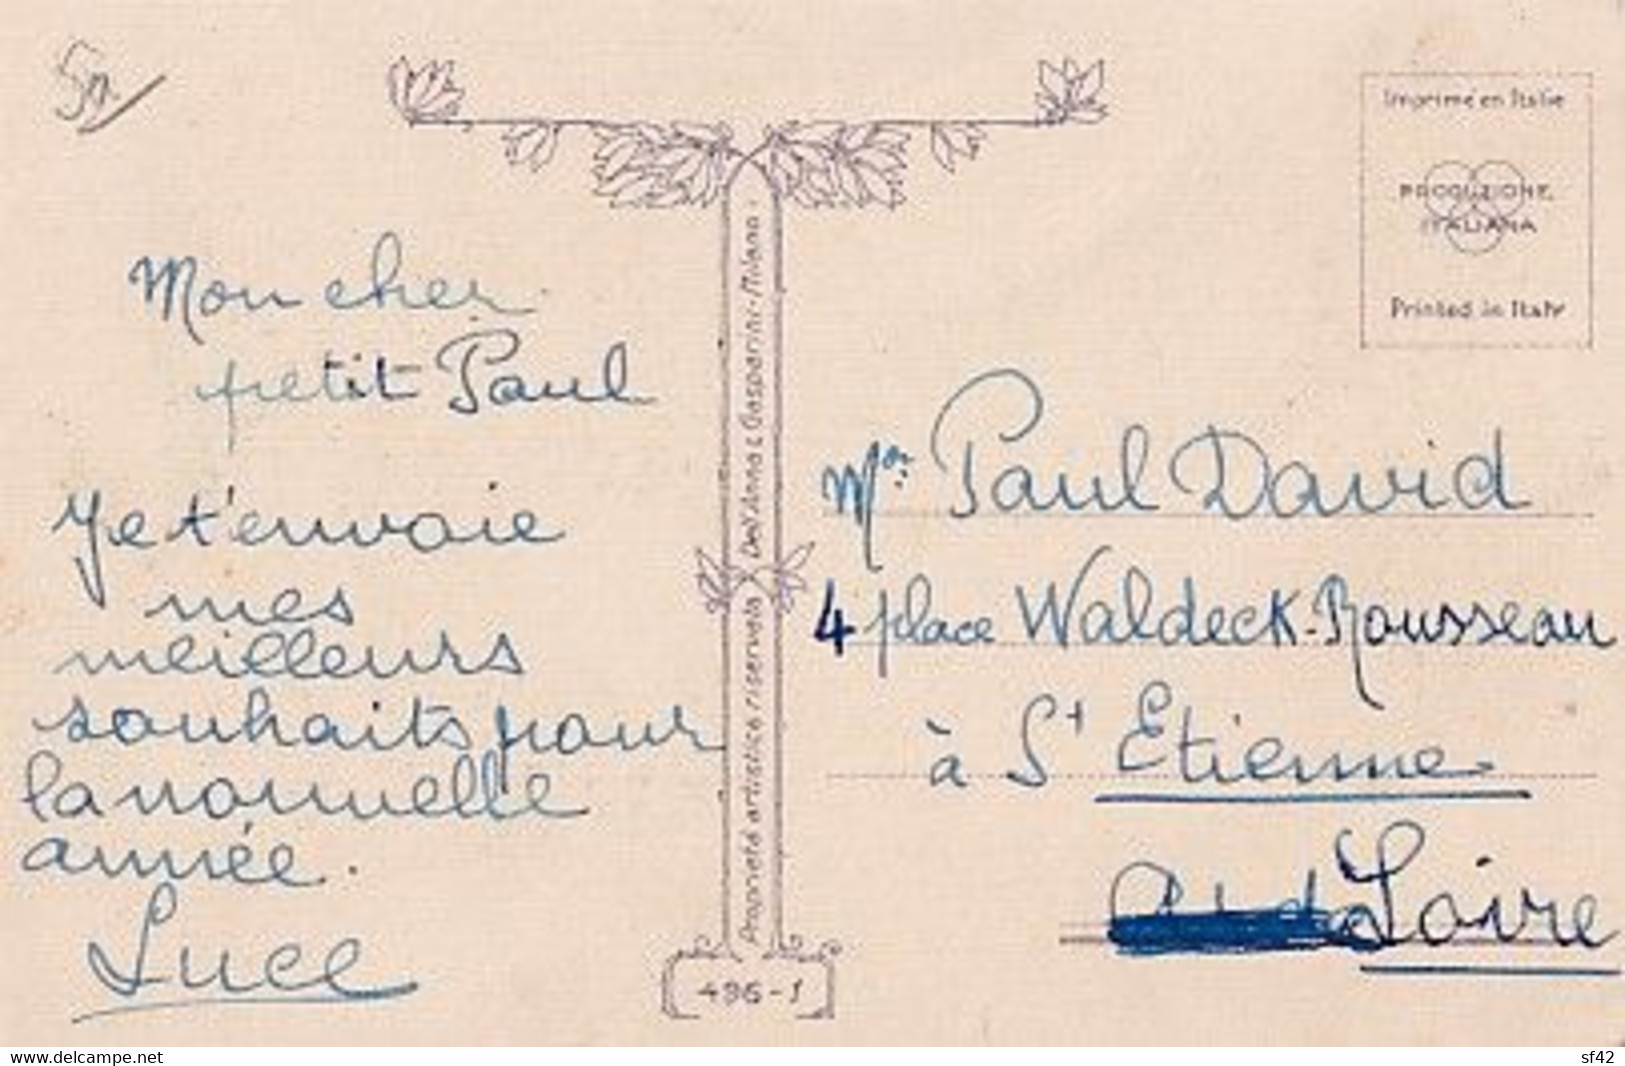 Mon cher
petit Paul
Je t'envoie
mes
meilleurs
souhaits pour
la nouvelle
année.
Luce
Proprietà artistica riservata Dell'Anna & Gasparini - Milano -
496-1
Imprimé en Italie
PRODUZIONE
ITALIANA
Printed in Italy
Mr Paul David
4 place Waldeck-Rousseau
à St Etienne
Loire
www.delcampe.net
sf42